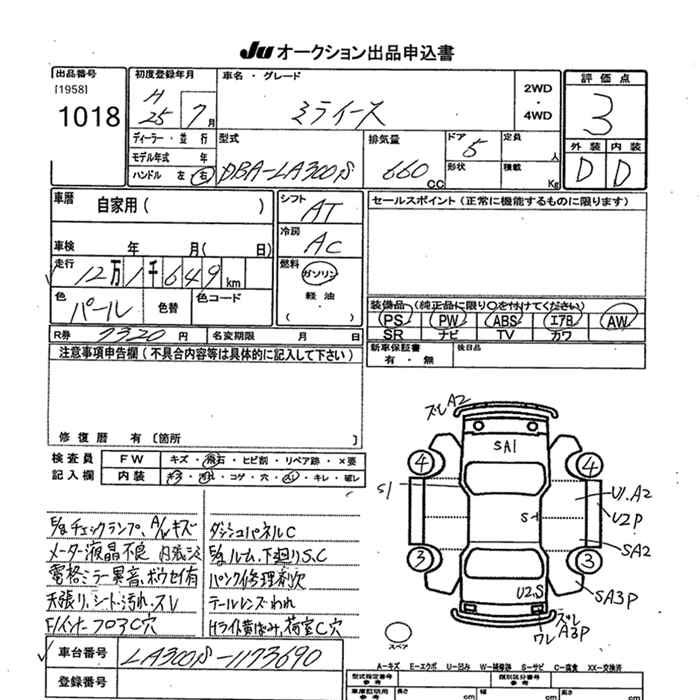 JU オークション出品申込書
出品番号
[1958]
1018
初度登録年月
H 25 7月
車名・グレード
ミライース
2WD
・
4WD
評価点
3
外装 内装
D D
ディーラー・並行
モデル年式 年
ハンドル 左 右
型式
DBA-LA300S
排気量
660 CC
ドア 5
形状
定員 人
積載 Kg
車歴
自家用( )
車検 年 月( 日)
走行
12万1千649km
色
パール
色替
色コード
シフト
AT
冷房
AC
燃料
ガソリン
軽油
( )
セールスポイント(正常に機能するものに限ります)
装備品 (純正品に限り○を付けてください)
PS PW ABS エアB AW
SR ナビ TV カワ
R券 7320 円
名変期限 月 日
新車保証書
有・無
後日品
注意事項申告欄(不具合内容等は具体的に記入して下さい)
修復歴 有〔箇所 〕
検査員
記入欄
FW キズ・飛石・ヒビ割・リペア跡・×要
内装 コゲ・穴・キレ・破レ
チェックランプ、A/Wキズ
メーター液晶不良
電格ミラー異音、ボウセイ有
天張り、シート汚れ、スレ
フロアC穴
ダッシュパネルC
ルーム、下廻りS.C
パンク修理剤欠
テールレンズわれ
Hライト黄ばみ、荷室C穴
車台番号 LA300S-1173690
登録番号
ズレA2
SA1
4 4
S1
U1.A2
U2P
S1
SA2
3 3
SA3P
U2.S
ズレ
A3P
ワレ
スペア
A-キズ E-エクボ U-凹み W-補修跡 S-サビ C-腐食 XX-交換済
型式指定番号
参考
類別区分番号
参考
車庫証明用
長さ cm
幅 cm
高さ cm